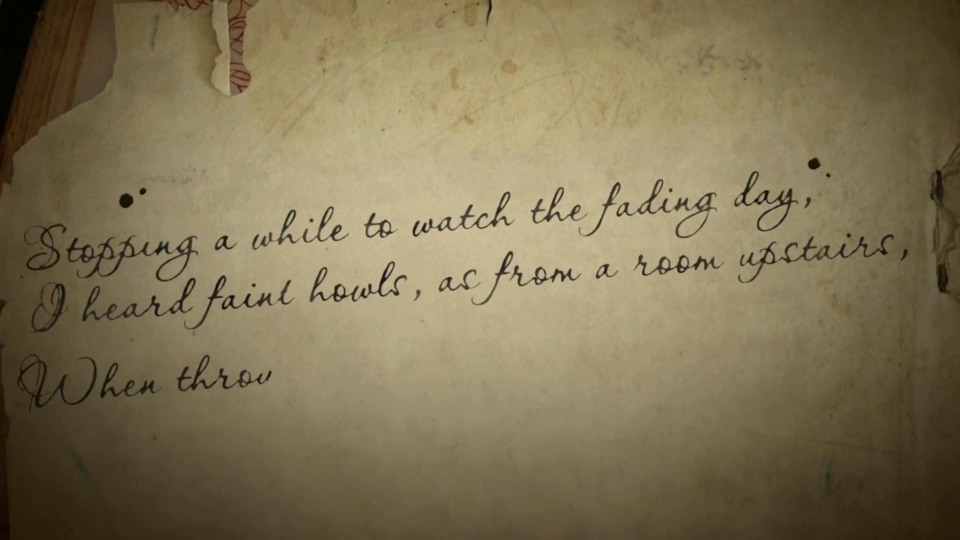 Stopping a while to watch the fading day,
I heard faint howls, as from a room upstairs,
When throu